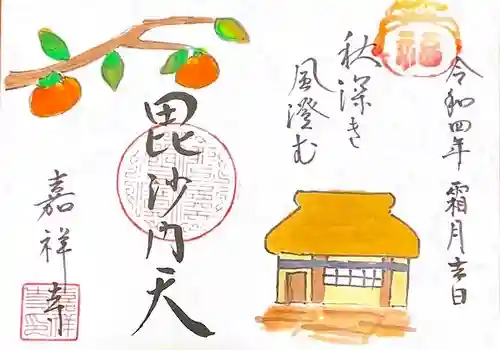 令和四年 霜月吉日
福
秋深き
風澄む
毘沙門天
嘉祥寺